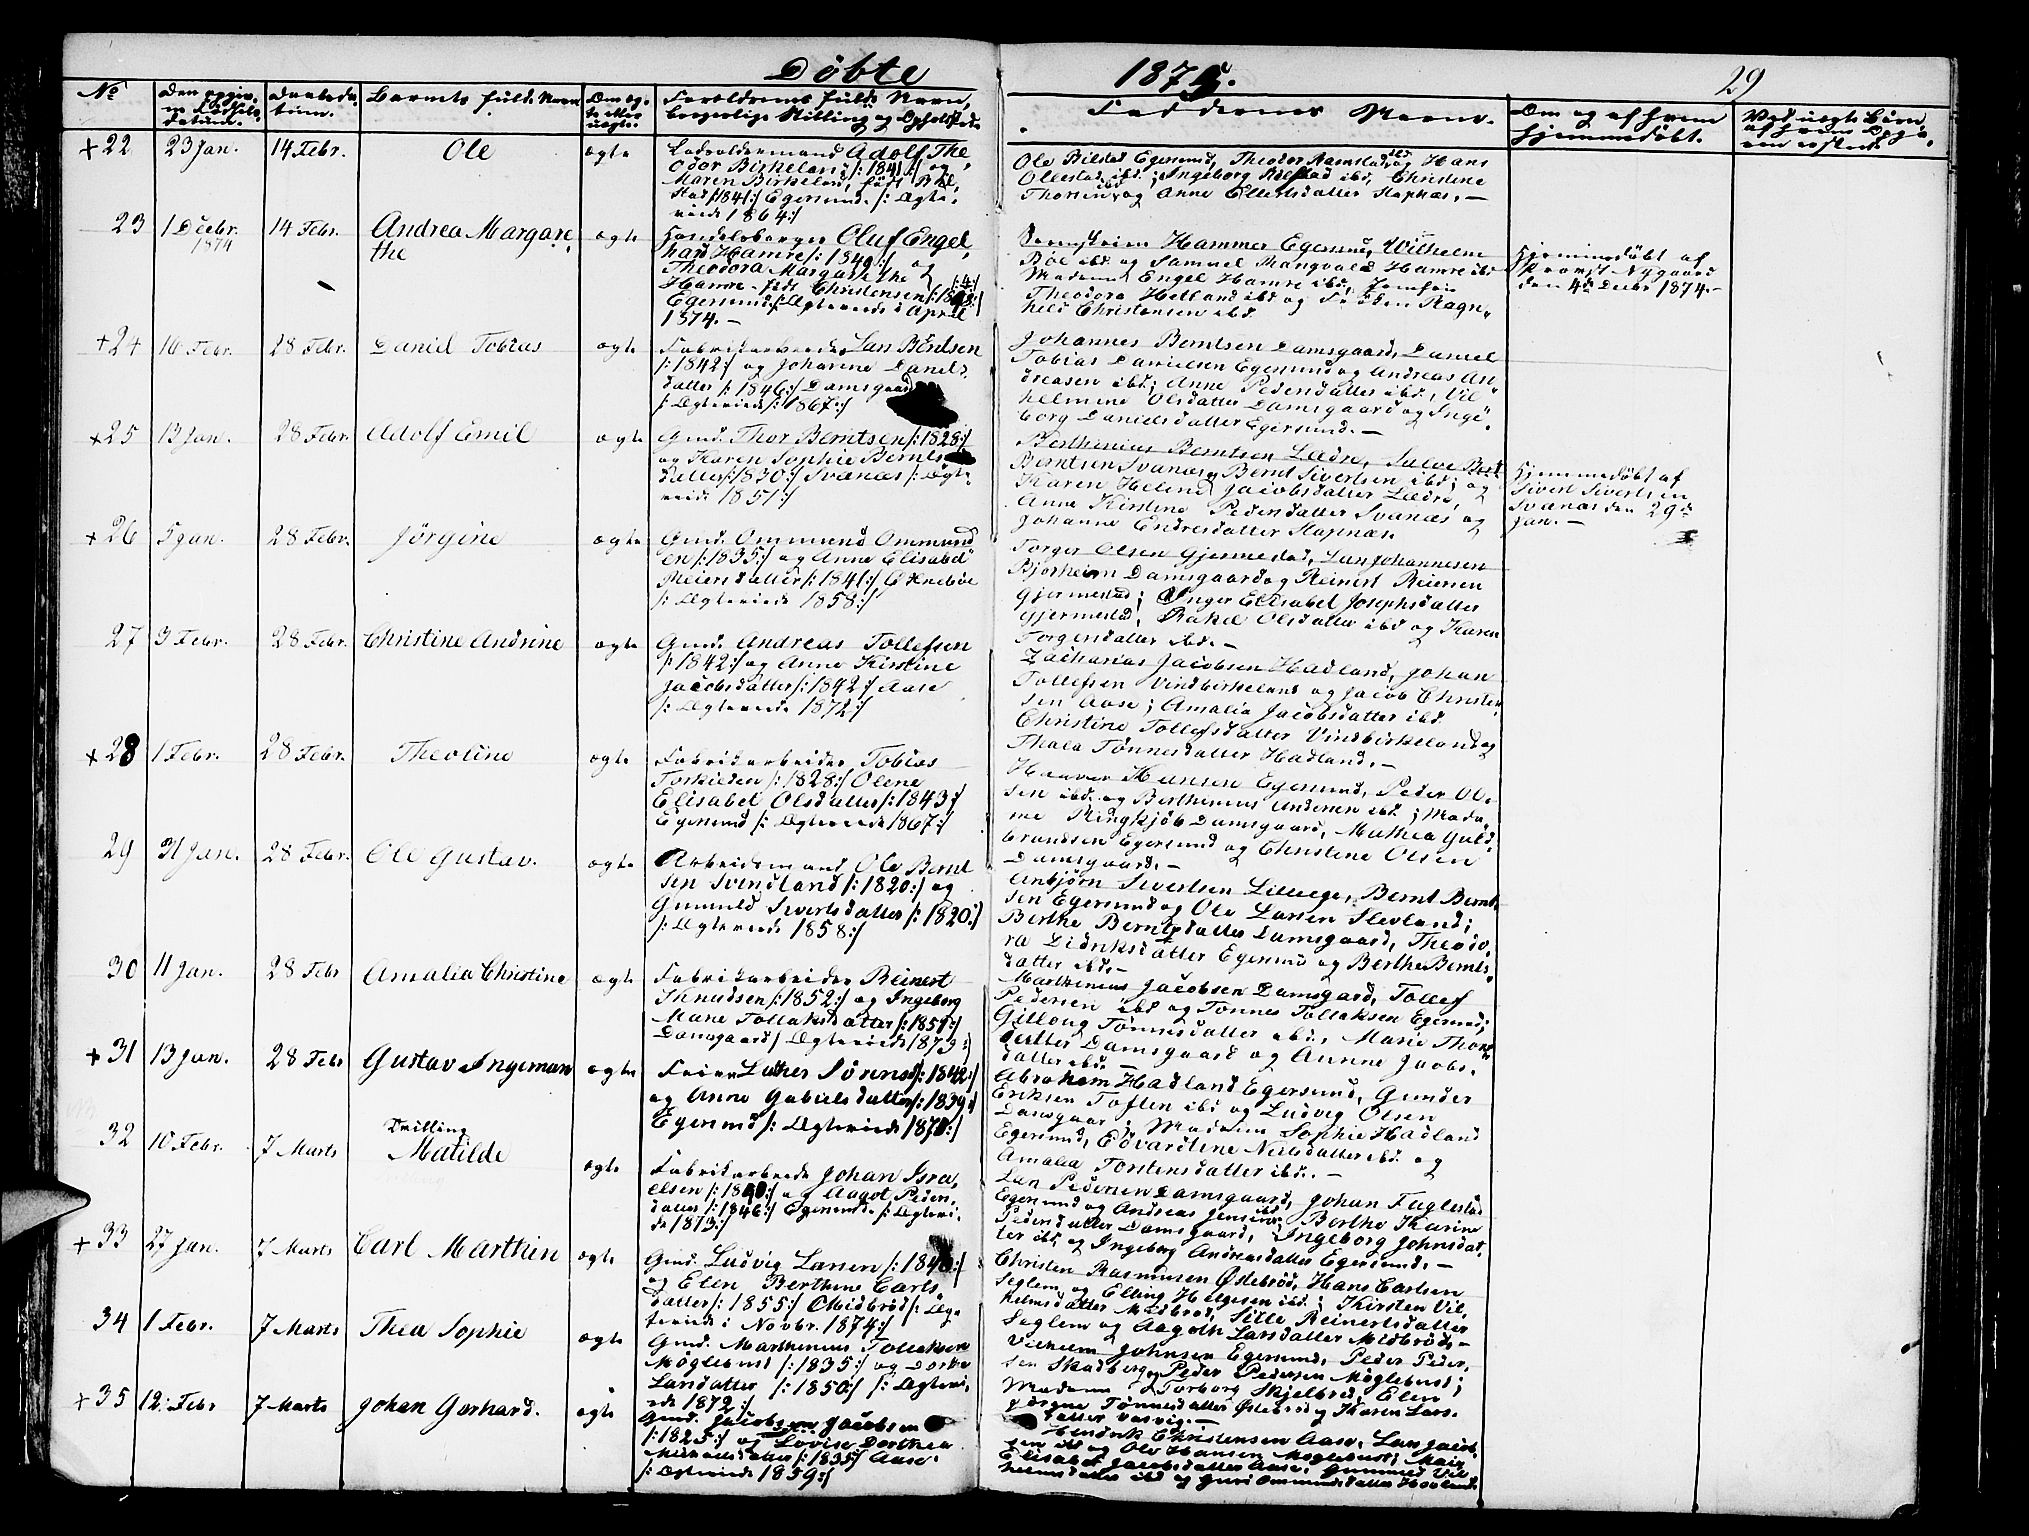 Døbte 1875. 29
No
Barnets fulde Navn
Faddernes Navne.
+22 23 Jan. 14 Febr. Ole ægte
Adolf The
odor Birkeland /: 1841:/ og
Maren Birkeland, født
/:1841:/ Egersund. /: Ægte
viede 1864:/
Ole Egersund, Theodor og Hans
ibd; Ingeborg ibd, Christine
og Anne
23 1 Decbr. 1874 14 Febr. Andrea Margare
the ægte
Handelsborger Oluf Engel
hard Hamre /: 1849:/ og
Theodora Margarethe
Hamre født Christensen
Egersund /: Ægteviede i April
1874. -
Hammer Egersund, Wilhelm
ibd og Samuel Hamre ibd
Madame Engel Hamre ibd, Jomfru
Theodora Hetland ibd og Frøken Ragn
hild Christensen ibd
Hjemmedøbt af
Provst Nygaard
den 4de Decbr 1874. -
+24 28 Febr. Daniel Tobias ægte
Fabrikarbeider Lars Berntsen
/: 1842:/ og Johanne Daniels
datter /: 1846:/ Damsgaard
/: Ægteviede 1867:/
Johannes Berntsen Damsgaard, Daniel
Tobias Danielsen Egersund og Andreas An
dreasen ibd; Anne Pedersdatter ibd, Vil
helmine Olsdatter Damsgaard og Inge
borg Danielsdatter Egersund. -
+25 13 Jan. 28 Febr. Adolf Emil ægte
Gmd. Thor Berntsen /: 1828:/
og Karen Sophie Bernts
datter /: 1830:/ Svanæs /: Ægte
viede 1851:/
Berthinius Berntsen Lædre,
Berntsen Svanæs, Bernt Sivertsen ibd; og
Karen Helene Jacobsdatter Lædre,
Anne Kirstine Pedersdatter Svanæs og
Johanne Endresdatter
Hjemmedøbt af
Sivert Sivertsen
Svanæs den 29de
Jan. -
+26 5 Jan. 28 Febr. Jørgine ægte
Gmd. Ommund Ommund
sen /: 1835:/ og Anne Elisabet
Reiersdatter /: 1841:/
/: Ægteviede 1858:/
Torger Olsen Gjermestad, Lars Johannesen
Bjorheim Damsgaard og Reinert Reiersen
Gjermestad; Inger Elisabet Josephsdatter
Gjermestad, Rakel Olsdatter ibd og Karen
Torgersdatter ibd. -
27 3 Febr. 28 Febr. Christine Andrine ægte
Gmd. Andreas Tollefsen
/: 1842:/ og Anne Kirstine
Jacobsdatter /: 1842:/ Aase
/: Ægteviede 1872:/
Zacharias Jacobsen Hadland, Johan
Tollefsen Vindbirkeland og Jacob Christen
sen Aase; Amalia Jacobsdatter ibd.
Christine Tollefsdatter Vindbirkeland og
Thala Tønnesdatter Hadland. -
+28 1 Febr. 28 Febr. Theoline ægte
Fabrikarbeider Tobias
/: 1828:/ Olene
Elisabet Olsdatter /: 1843:/
Egersund /: Ægteviede 1867:/
Hansen Egersund, Peder Ol
sen ibd. og Berthinius Andersen ibd; Mada
me Ringkjøb Damsgaard, Mathea Guld
brandsen Egersund og Christine Olsen
Damsgaard. -
29 31 Jan. 28 Febr. Ole Gustav. ægte
Arbeidsmand Ole Bernt
sen Svindland /: 1820:/ og
Gunnild Sivertsdatter /: 1820:/
/: Ægteviede 1858:/
Anbjørn Sivertsen Bernt Bernt
sen Egersund og Ole Larsen Slevland;
Berthe Berntsdatter Damsgaard, Theodo
ra Didriksdatter Egersund og Berthe Bernts
datter ibd. -
30 11 Jan. 28 Febr Amalia Christine ægte
Fabrikarbeider Reinert
Knudsen /: 1852:/ og Ingeborg
Marie Tollaksdatter /: 1851:/
Damsgaard Ægteviede 1873:/
Marthinius Jacobsen Damsgaard, Tollef
Pedersen ibd og Tønnes Tollaksen Egersund;
Tønnesdatter ibd, Marie
datter Damsgaard og Anne Jacobs
datter ibd. -
+31 13 Jan. 28 Febr Gustav Ingeman ægte
/: 1842:/
og Anne Gabrielsdatter /: 1839:/
Egersund /: Ægteviede
Abraham Hadland Egersund, Gunder
Eriksen Toften ibd og Ludvig Olsen
Damsgaar; Madam Sophie Hadland
Egersund, Edvardine Nielsdatter ibd og
Amalia Torstensdatter ibd. -
32 10 Febr. 7 Marts Tvilling
Matilde ægte
Fabrikarbeide Johan Isra
elsen og Aagot Peders
datter /: 1846:/ Egersund. /: Ægtevi
de 1873:/
Lars Pedersen Damsgaard, Johan Fuglestad
Egersund og Andreas Jensen; Berthe Karine
Pedersdatter Damsgaard, Ingeborg Johnsdat
ter ibd. og Ingeborg Andreasdatter Egersund. -
+33 27 Jan. 7 Marts Carl Marthin ægte
Gmd. Ludvig Larsen
og Elen Berthine Carls
datter /: 1855:/ Midbrød /: Æg
teviede i Novbr. 1874:/
Christen Rasmussen Østebrød, Hans Carlsen
Seglem og Elling Helgesen ibd; Kirsten Vil
helmsdatter Midbrød, Sille Reinertsdatter
Seglem og Aagoth Larsdatter Midbrød. -
34 1 Febr. 7 Marts Thea Sophie ægte
Gmd. Marthinius Tollaksen
Møglebust /: 1835:/ og Dorthe
Larsdatter /: 1850:/ /: Ægtevi
ede 1872:/
Vilhelm Johnsen Egersund, Peder Peder
sen Skadberg, Peder Pedersen Møglebust;
Madame Torborg Skjelbred, Elen
Tønnesdatter Østebrød og Karen Lars
datter
+35 12. Febr 7 Marts Johan Gerhard. ægte
Gmd. Jacobsen
/: 1825:/ og Lovise Dorthea
/: 1835:/ Aase.
/: Ægteviede 1859:/
Hendrik Christensen Aase, Lars Jacob
sen ibd og Ole Hansen Møglebust;
Elisabet Jacobsdatter Aase, Gunnild Vil
helmsdatter ibd og Guri Ommundsdatter